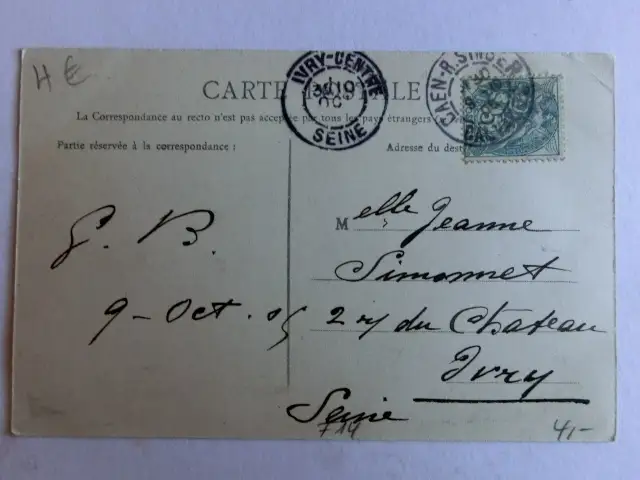 4 €
IVRY-CENTRE
SEINE
CAEN-R.SINGER
CARTE POSTALE
La Correspondance au recto n'est pas acceptée par tous les pays étrangers
Partie réservée à la correspondance :
Adresse du dest
Melle Jeanne
Simonnet
G. B.
9 - Oct. 05
2 du Chateau
Ivry
Seine
41-